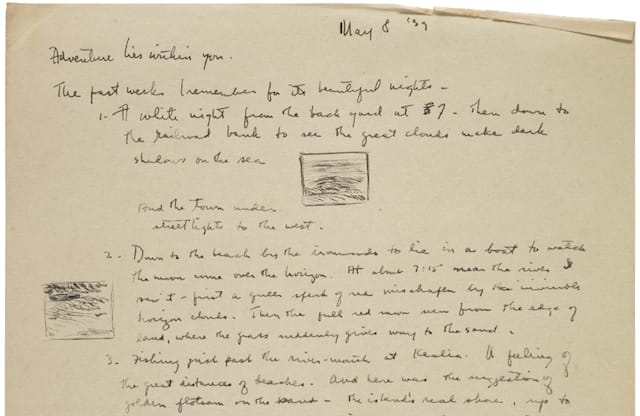 May 8 '39
Adventure lies within you.
The past weeks I remember for its beautiful nights -
1 - A white night from the back yard at 87 - Then down to
the railroad bank to see the great clouds make dark
shadows on the sea
And the town under
streetlights to the west.
2 - Down to the beach by the ironwoods to lie in a boat to watch
the moon come over the horizon. At about 2:15 near the rives I
saw it - first a queer speck of red misshapen by the invisible
horizon clouds. Then the full red moon seen from the edge of
land, where the grass suddenly gives way to the sand.
3. Fishing just past the river-mouth at Kealia. A feeling of
the great distances of beaches. And here was the suggestion of
golden flotsam on the sand - the island's real shore, up to